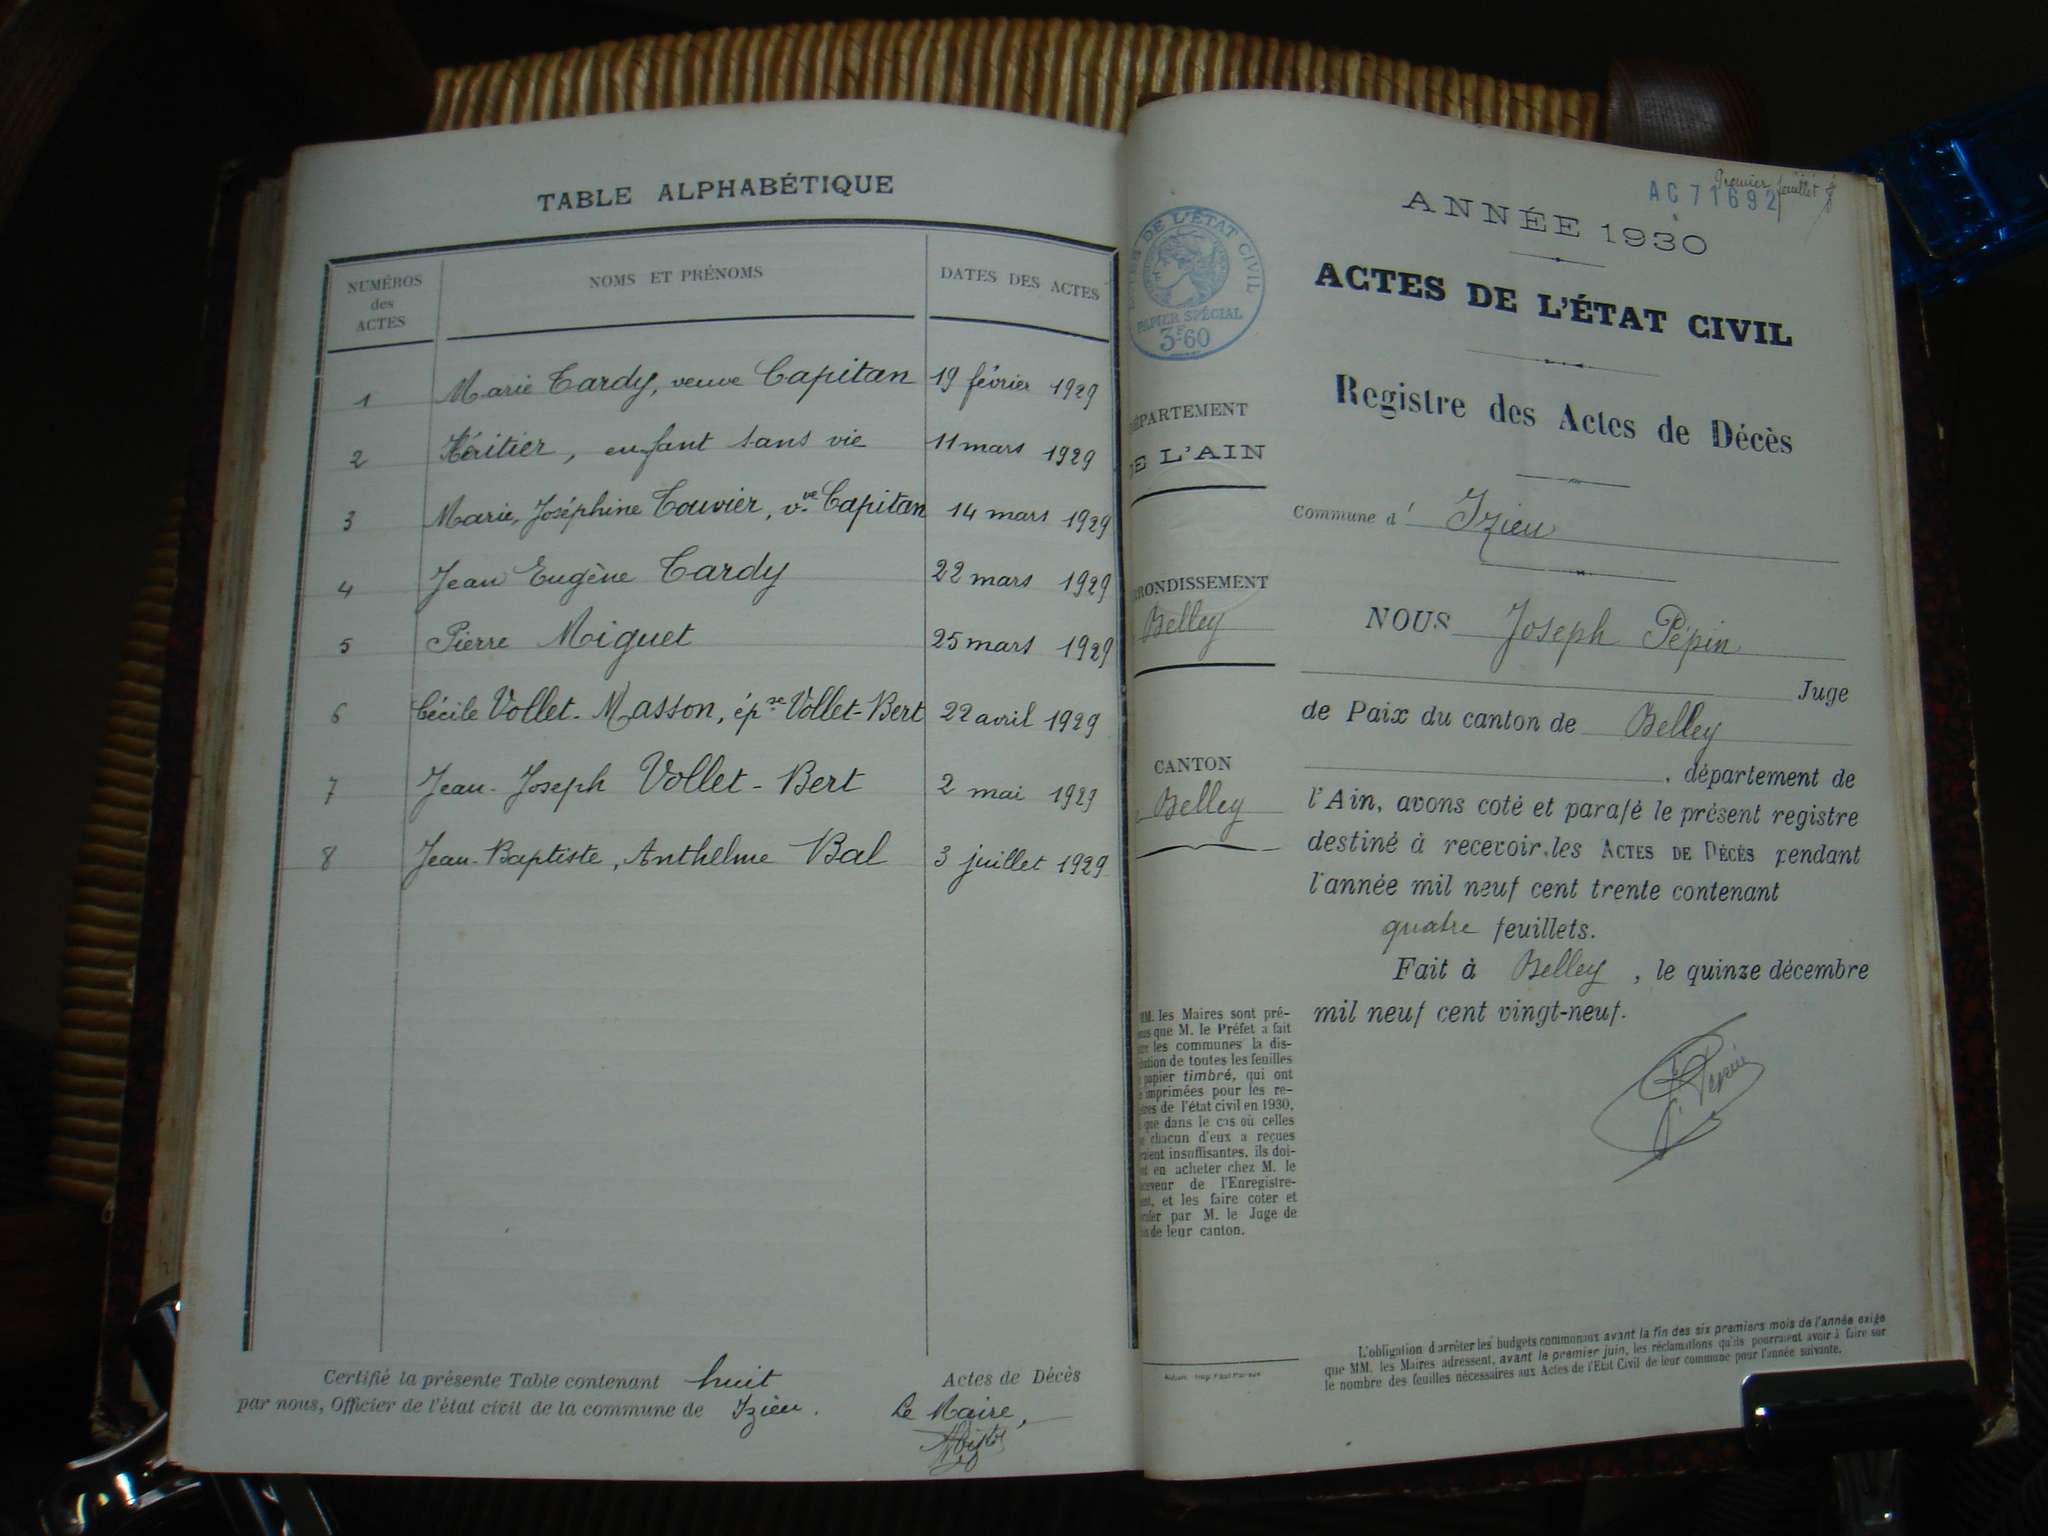 TABLE ALPHABÉTIQUE
NUMÉROS
des
ACTES
NOMS ET PRÉNOMS
DATES DES ACTES
1 Marie Tardy, veuve Capitan 19 février 1929
2 Héritier, enfant sans vie 11 mars 1929
3 Marie, Joséphine Touvier, vve Capitan 14 mars 1929
4 Jean Eugène Tardy 22 mars 1929
5 Pierre Miguet 25 mars 1929
6 Cécile Vollet-Masson, épse Vollet-Bert 22 avril 1929
7 Jean-Joseph Vollet-Bert 2 mai 1929
8 Jean-Baptiste, Anthelme Bal 3 juillet 1929
Certifié la présente Table contenant huit Actes de Décès
par nous, Officier de l'état civil de la commune de Izieu.
Le Maire,
Premier feuillet
AC 71692
DE L'ÉTAT CIVIL
PAPIER SPÉCIAL
3F60
DÉPARTEMENT
DE L'AIN
ARRONDISSEMENT
Belley
CANTON
Belley
MM. les Maires sont pré-
nus que M. le Préfet a fait
les communes la dis-
bution de toutes les feuilles
papier timbré, qui ont
imprimées pour les re-
tres de l'état civil en 1930,
que dans le cas où celles
chacun d'eux a reçues
raient insuffisantes, ils doi-
en acheter chez M. le
ceveur de l'Enregistre-
ent, et les faire coter et
rafer par M. le Juge de
de leur canton.
ANNÉE 1930
ACTES DE L'ÉTAT CIVIL
Registre des Actes de Décès
Commune d' Izieu
NOUS Joseph Pépin
Juge
de Paix du canton de Belley
, département de
l'Ain, avons coté et parafé le présent registre
destiné à recevoir les ACTES DE DÉCÈS pendant
l'année mil neuf cent trente contenant
quatre feuillets.
Fait à Belley, le quinze décembre
mil neuf cent vingt-neuf.
Pépin
L'obligation d'arrêter les budgets communaux avant la fin des six premiers mois de l'année exige
que MM. les Maires adressent, avant le premier juin, les réclamations qu'ils pourraient avoir à faire sur
le nombre des feuilles nécessaires aux Actes de l'Etat Civil de leur commune pour l'année suivante.